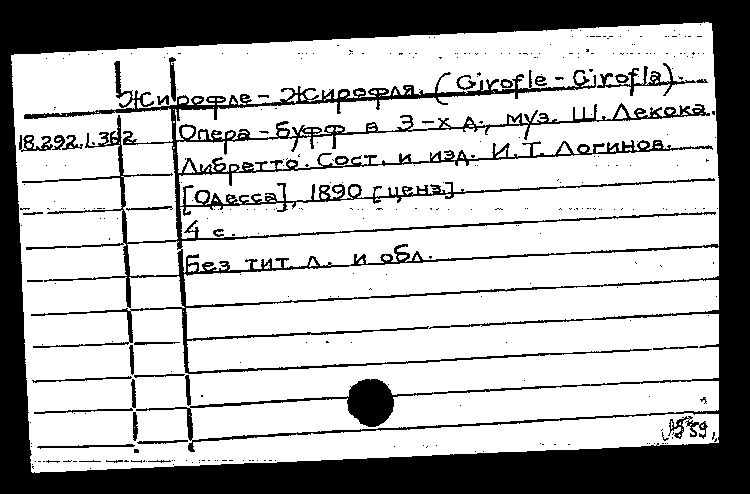 Жирофле - Жирофля. (Girofle - Girofla).
18.292.1.362 Опера - буфф в 3-х д., муз. Ш. Лекока.
Либретто. Сост. и изд. И. Т. Логинов.
[Одесса], 1890 [ценз].
4 с.
Без тит. л. и обл.